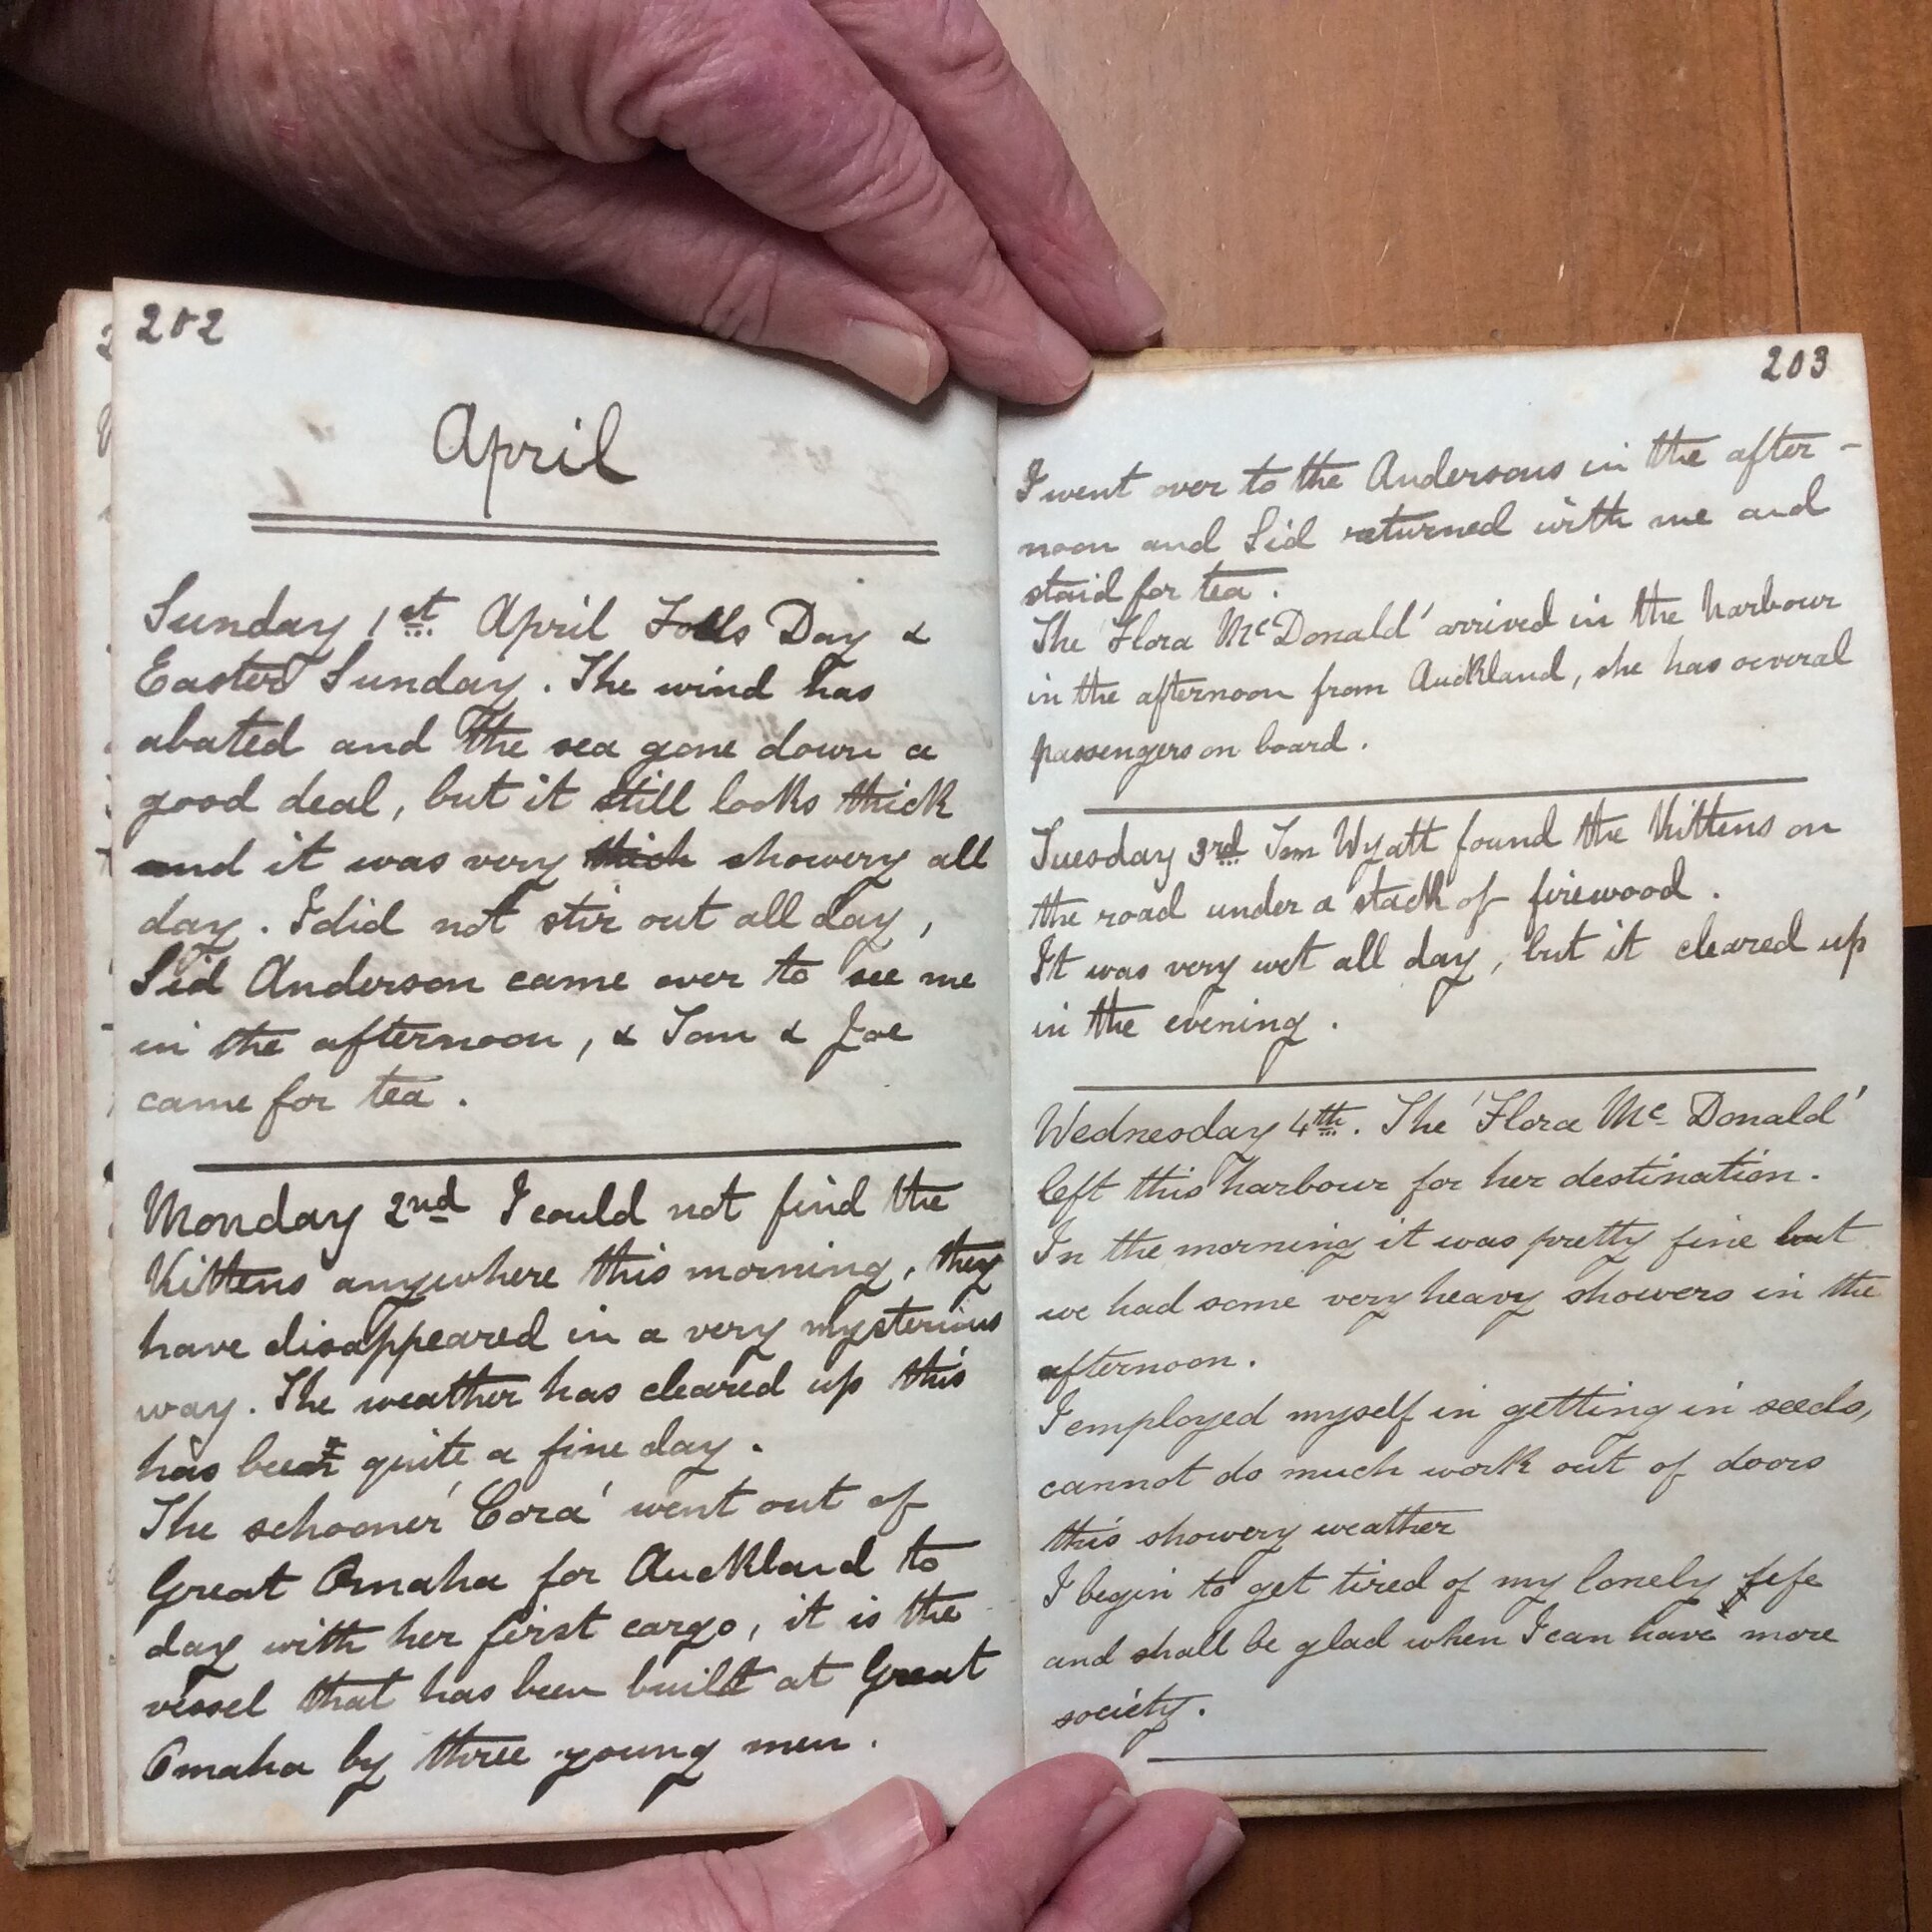 202
April
Sunday 1st April Folls Day &
Easter Sunday. The wind has
abated and the sea gone down a
good deal, but it still looks thick
and it was very thick showery all
day. I did not stir out all day,
Sid Anderson came over to see me
in the afternoon, & Tom & Joe
came for tea.
Monday 2nd I could not find the
Kittens anywhere this morning, they
have disappeared in a very mysterious
way. The weather has cleared up this
has been quite a fine day.
The schooner 'Cora' went out of
Great Omaha for Auckland to
day with her first cargo, it is the
vessel that has been built at Great
Omaha by three young men.
203
I went over to the Andersons in the after-
noon and Sid returned with me and
staid for tea.
The 'Flora McDonald' arrived in the harbour
in the afternoon from Auckland, she has several
passengers on board.
Tuesday 3rd Tom Wyatt found the Kittens on
the road under a stack of firewood.
It was very wet all day, but it cleared up
in the evening.
Wednesday 4th. The 'Flora Mc Donald'
left this harbour for her destination.
In the morning it was pretty fine but
we had some very heavy showers in the
afternoon.
I employed myself in getting in seeds,
cannot do much work out of doors
this showery weather
I begin to get tired of my lonely life
and shall be glad when I can have more
society.